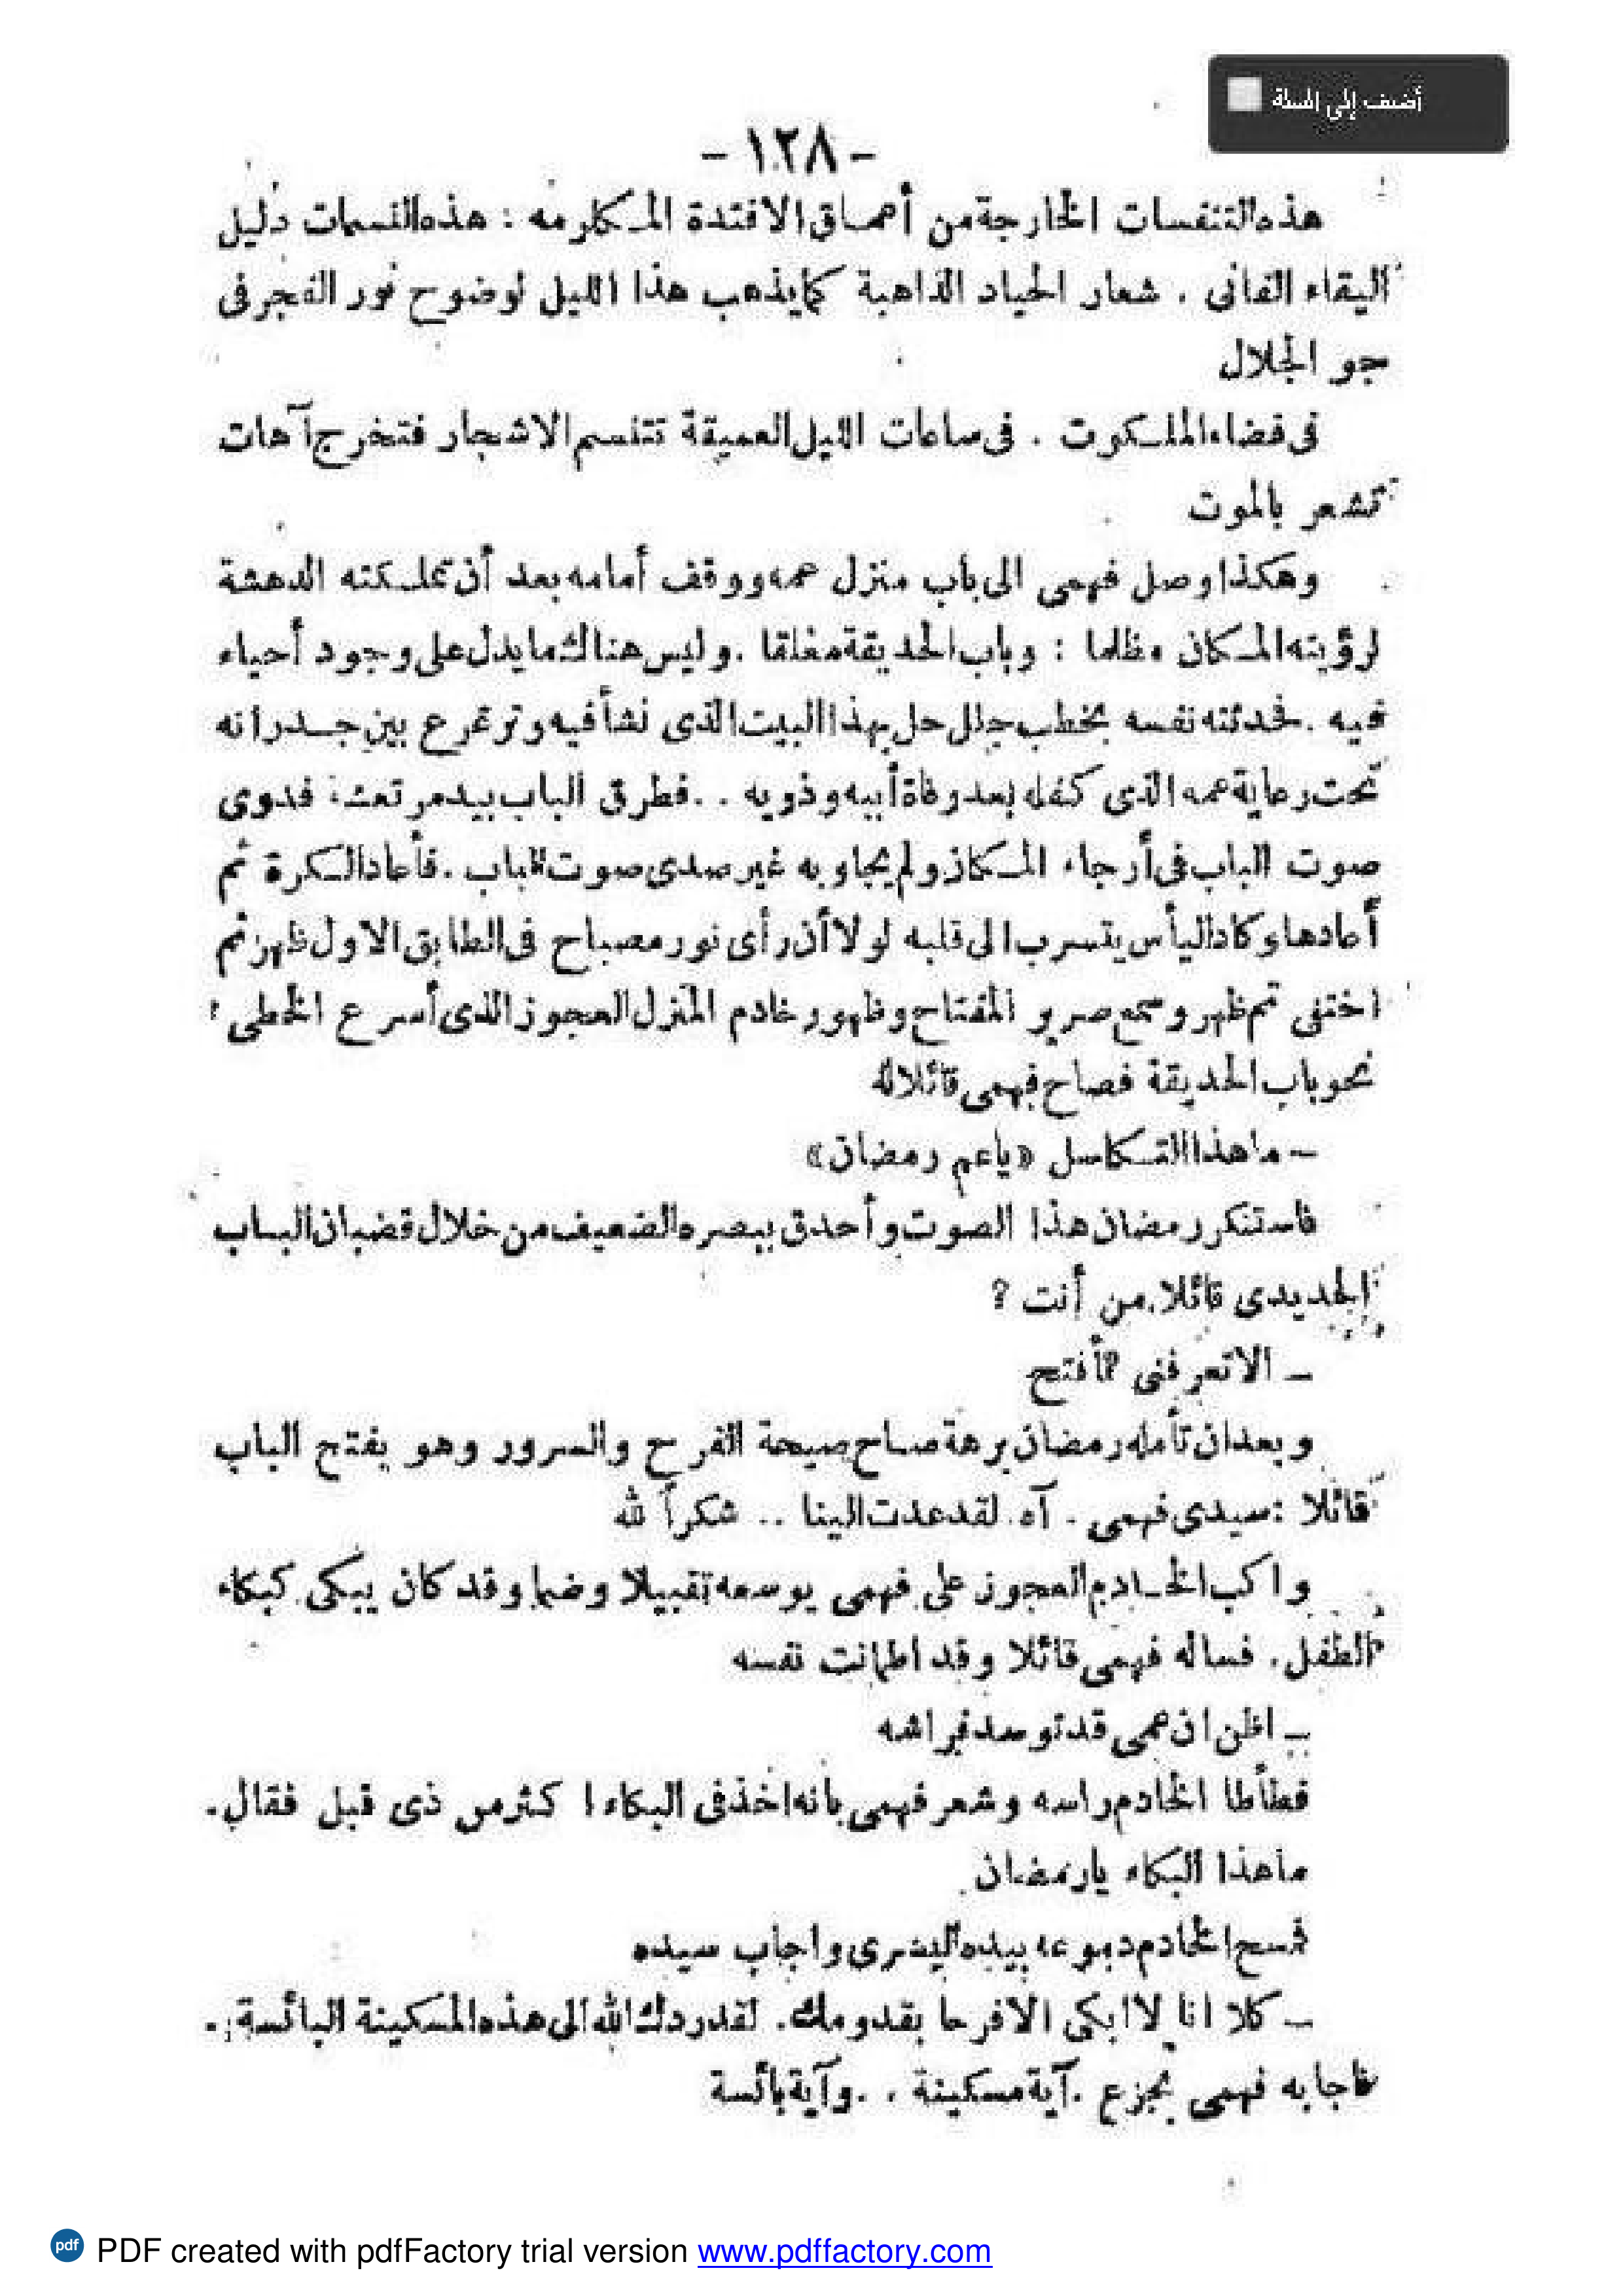 أضف إلى السلة
- ١٢٨ -
هذه التنفسات الخارجة من أعماق الافئدة المكلومه : هذه النسمات دليل
البقاء الفانى . شعار الحياه الذاهبة كما يذهب هذا الليل لوضوح نور الفجر فى
جو الجلال
فى فضاء الملكوت . فى ساعات الليل العميقة تتنسم الاشجار فتخرج آهات
تشعر بالموت
وهكذا وصل فهمى الى باب منزل عمه ووقف أمامه بعد أن تملكته الدهشة
لرؤيته المكان مظلما : وباب الحديقة مغلقا . وليس هناك ما يدل على وجود أحياء
فيه . فحدثته نفسه بخطب جلل حل بهذا البيت الذى نشأ فيه وترعرع بين جدرانه
تحت رعاية عمه الذى كفله بعد وفاة أبيه وذويه . . فطرق الباب بيد مرتعشة فدوى
صوت الباب فى أرجاء المكان ولم يجاوبه غير صدى صوت الباب . فأعاد الكرة ثم
أعادها وكاد اليأس يتسرب الى قلبه لولا أن رأى نور مصباح فى الطابق الاول ظهر ثم
اختفى ثم ظهر وسمع صرير المفتاح وظهور خادم المنزل العجوز الذى أسرع الخطى
نحو باب الحديقة فصاح فهمى قائلا له
– ما هذا التكاسل «ياعم رمضان»
فاستنكر رمضان هذا الصوت وأحدق ببصره الضعيف من خلال قضبان الباب
الحديدى قائلا من أنت ?
– الا تعرفنى ? أفتح
وبعد ان تأمله رمضان برهة صاح صيحة الفرح والسرور وهو يفتح الباب
قائلا : سيدى فهمى . آه . لقد عدت الينا .. شكراً لله
واكب الخادم العجوز على فهمى يوسعه تقبيلا وضما وقد كان يبكى كبكاء
الطفل . فساله فهمى قائلا وقد اطمانت نفسه
– اظن ان عمى قد توسد فراشه
فطأطا الخادم راسه وشعر فهمى بانه اخذ فى البكاء اكثر من ذى قبل فقال .
ما هذا البكاء يا رمضان
فمسح الخادم دموعه بيده اليسرى واجاب سيده
– كلا انا لا ابكى الا فرحا بقدومك . لقد ردك الله الى هذه المسكينة البائسة .
فاجابه فهمى بجزع . آية مسكينة . . وآية بائسة
pdf PDF created with pdfFactory trial version www.pdffactory.com